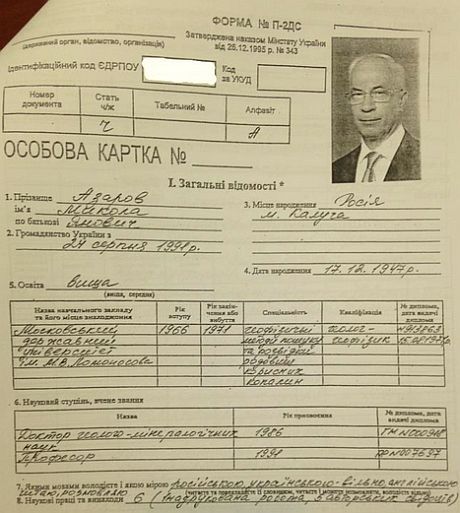 ФОРМА № П-2ДС
Затверджена наказом Мінстату України
від 26.12.1995 р. № 343
(державний орган, відомство, організація)
Ідентифікаційний код ЄДРПОУ
Код за УКУД
Номер документа Стать ч/ж Табельний № Алфавіт
Ч А
ОСОБОВА КАРТКА №
I. Загальні відомості *
1. Прізвище Азаров
ім'я Микола
по батькові Янович
2. Громадянство України з
24 серпня 1991 р.
3. Місце народження Росія
м. Калуга
4. Дата народження 17.12.1947 р.
5. Освіта Вища
(вища, середня)
Назва навчального закладу та його місце знаходження Рік вступу Рік закінчення або вибуття Спеціальність Кваліфікація № диплома, дата видачі диплома
Московський державний університет ім. М.В. Ломоносова 1966 1971 геофізичні методи пошуку та розвідки родовищ корисних копалин геолог-геофізик
6. Науковий ступінь, вчене звання
Назва Рік присвоєння № диплома, дата видачі диплома
Доктор геолого-мінералогічних наук 1986
Професор 1991
7. Якими мовами володієте і якою мірою російською, українською - вільно, англійською
читаю, розмовляю
8. Наукові праці та винаходи